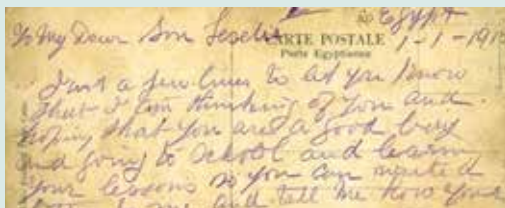 Egypt
To My Dear Son Leselie
CARTE POSTALE 1-1-191
Poste Egyptienne
Just a few lines to let you know
that I am thinking of you and
hoping that you are a good boy
and going to school and learn
your lessons so you can
and tell me how your